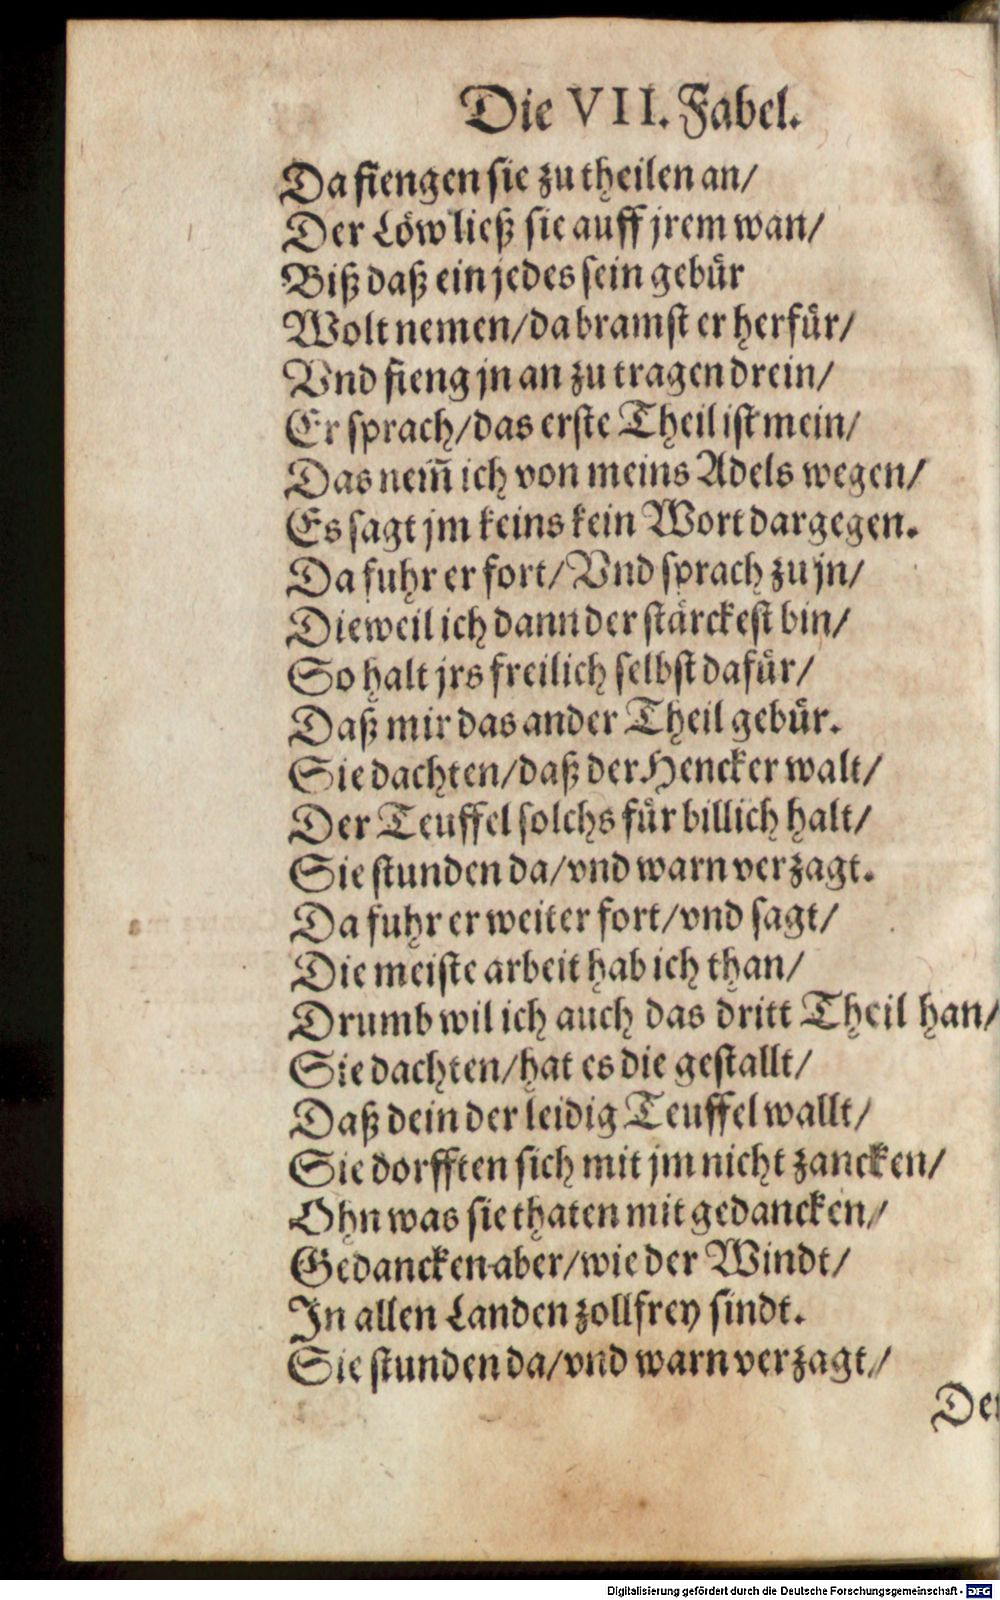 Die VII. Fabel.
Da fiengen sie zu theilen an/
Der Löw ließ sie auff jrem wan/
Biß daß ein jedes sein gebür
Wolt nemen/ da bramst er herfür/
Vnd fieng jn an zu tragen drein/
Er sprach/ das erste Theil ist mein/
Das nem̃ ich von meins Adels wegen/
Es sagt jm keins kein Wort dargegen.
Da fuhr er fort/ Vnd sprach zu jn/
Dieweil ich dann der stärckest bin/
So halt jrs freilich selbst dafür/
Daß mir das ander Theil gebür.
Sie dachten/ daß der Hencker walt/
Der Teuffel solchs für billich halt/
Sie stunden da/ vnd warn verzagt.
Da fuhr er weiter fort/ vnd sagt/
Die meiste arbeit hab ich than/
Drumb wil ich auch das dritt Theil han/
Sie dachten/ hat es die gestallt/
Daß dein der leidig Teuffel wallt/
Sie dorfften sich mit jm nicht zancken/
Ohn was sie thaten mit gedancken/
Gedancken aber/ wie der Windt/
In allen Landen zollfrey sindt.
Sie stunden da/ vnd warn verzagt/
Der
Digitalisierung gefördert durch die Deutsche Forschungsgemeinschaft - DFG